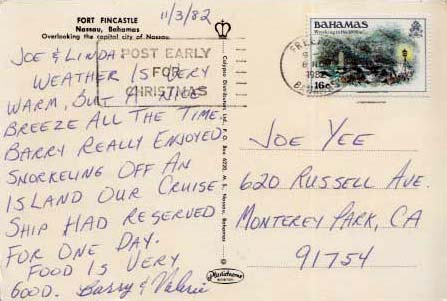 11/3/82
FORT FINCASTLE
Nassau, Bahamas
Overlooking the capital city of Nassau.
JOE & LINDA:
WEATHER IS VERY
WARM, BUT A NICE
BREEZE ALL THE TIME.
BARRY REALLY ENJOYED
SNORKELING OFF AN
ISLAND OUR CRUISE
SHIP HAD RESERVED
FOR ONE DAY.
FOOD IS VERY
GOOD. Barry & Valerie
POST EARLY
FOR
CHRISTMAS
BAHAMAS
16c
1982
JOE YEE
620 RUSSELL AVE.
MONTEREY PARK, CA
91754